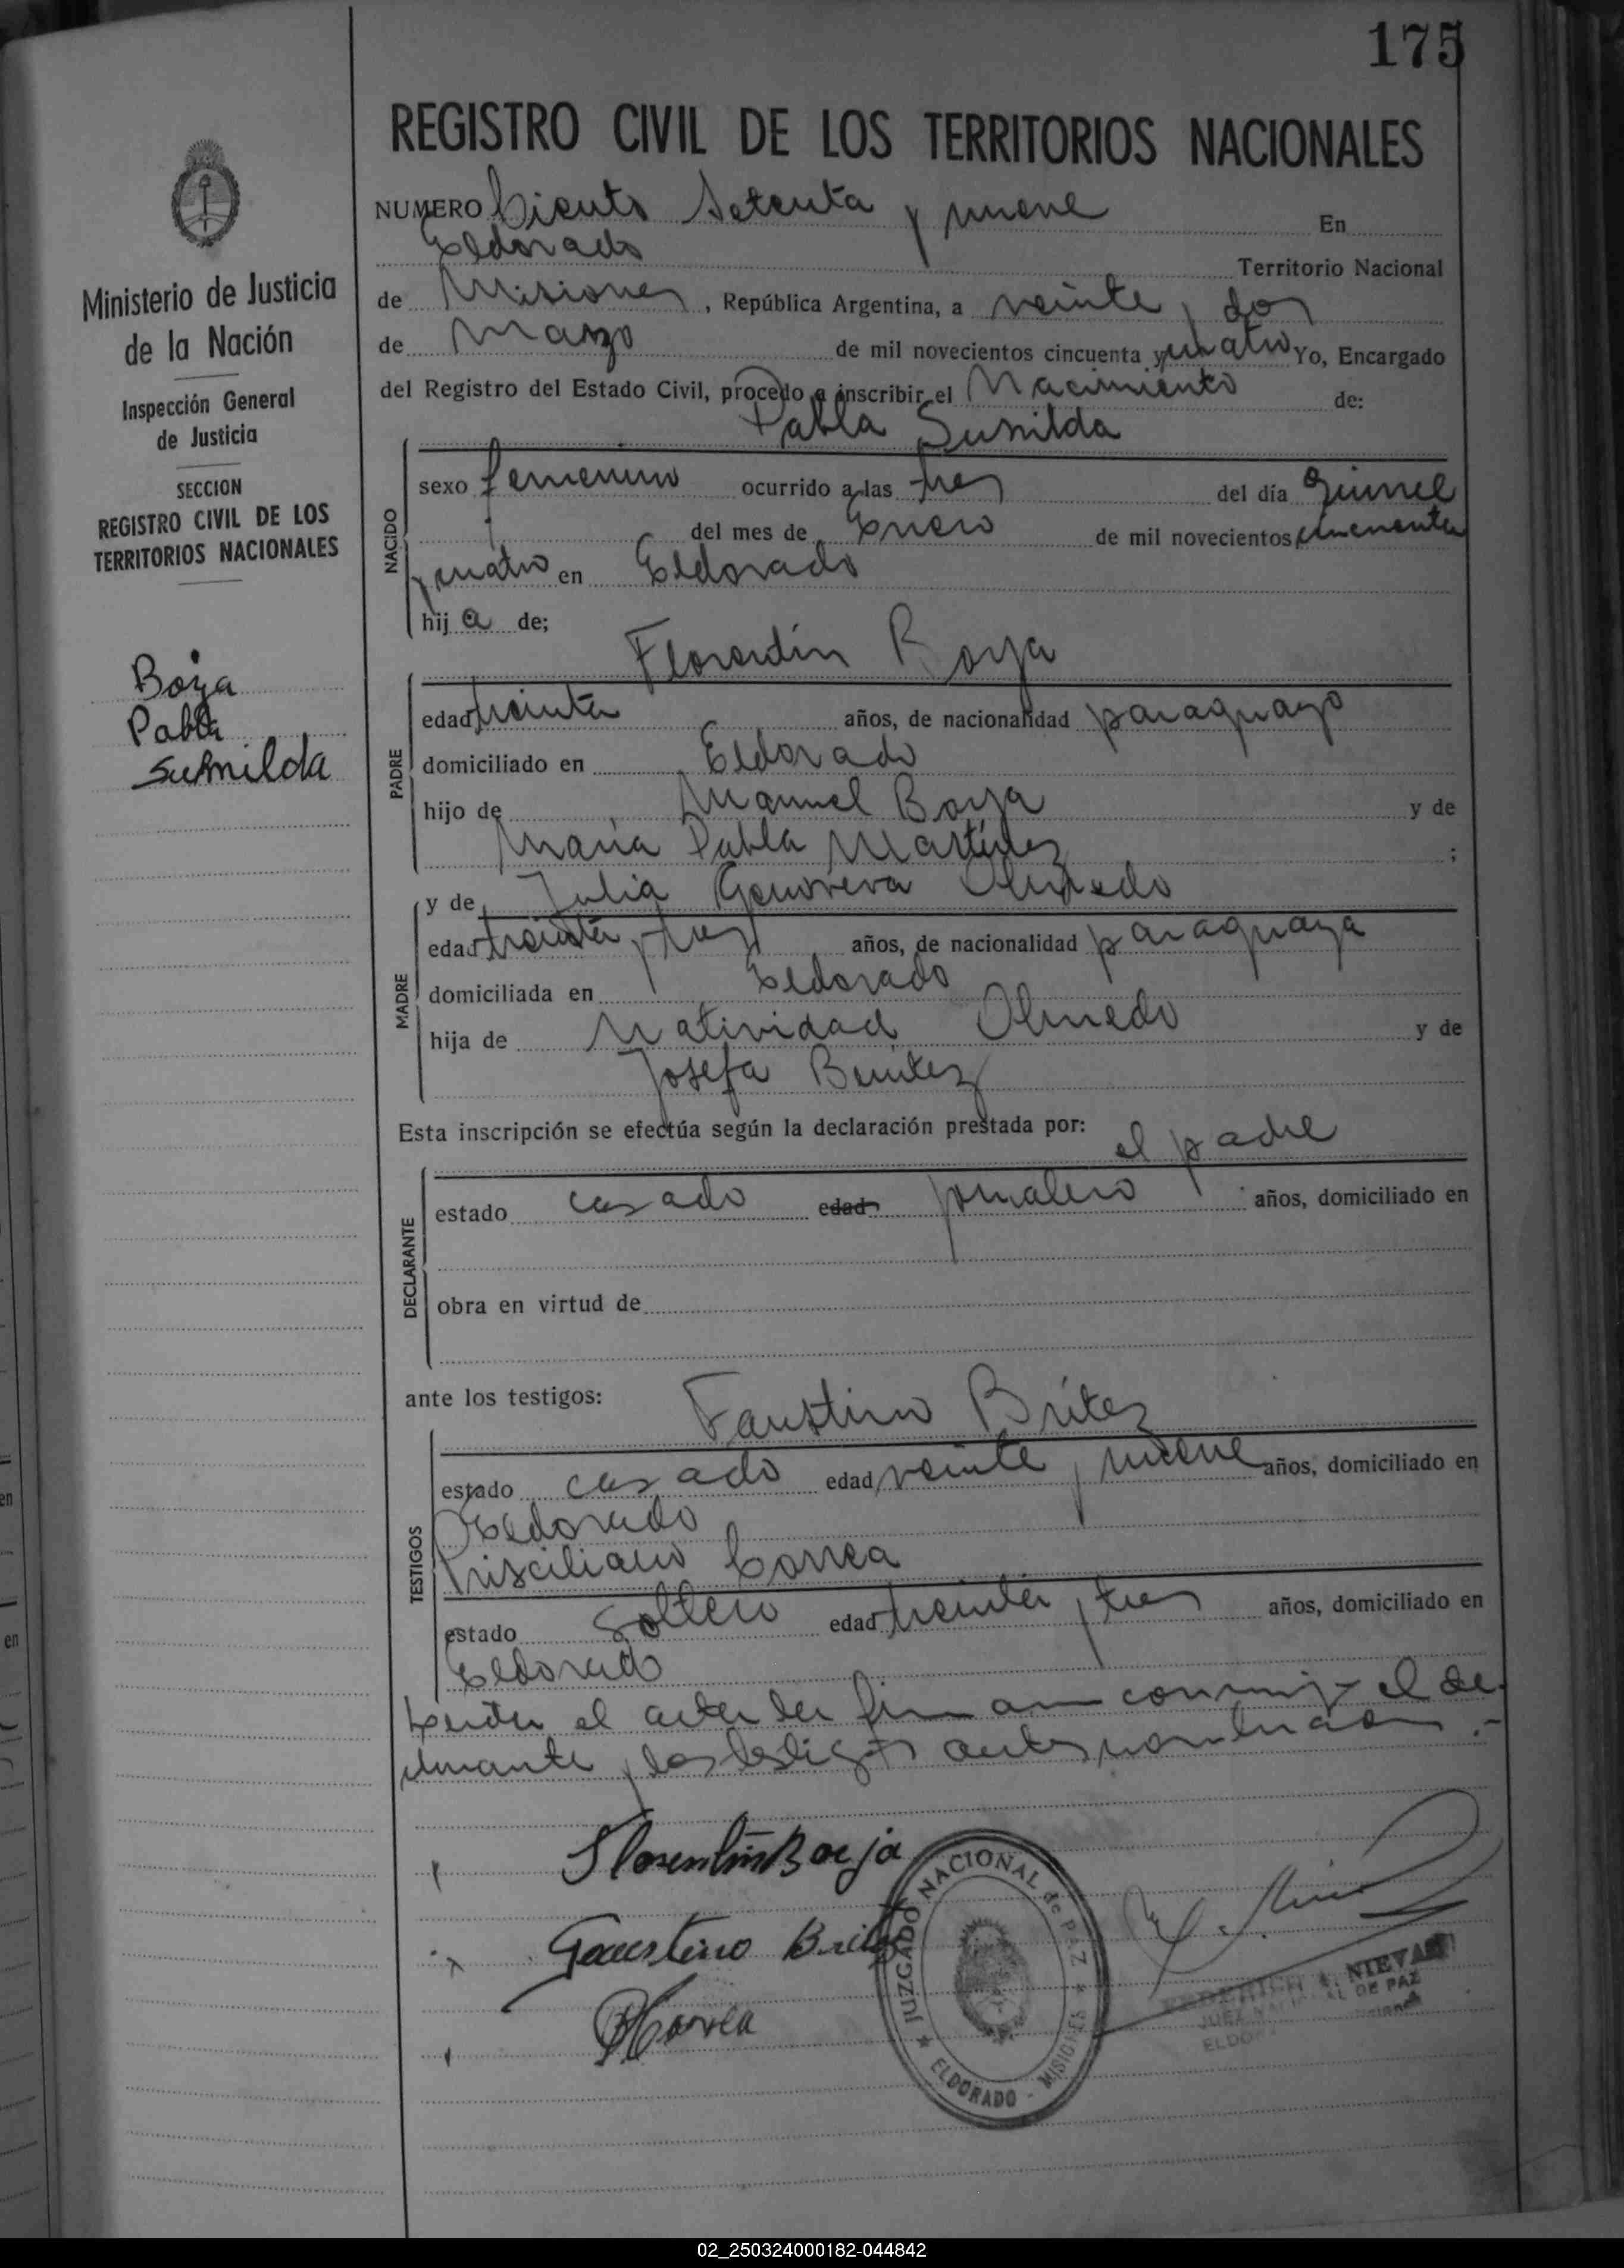 175
REGISTRO CIVIL DE LOS TERRITORIOS NACIONALES
Ministerio de Justicia
de la Nación
Inspección General
de Justicia
SECCION
REGISTRO CIVIL DE LOS
TERRITORIOS NACIONALES
Boya
Pabla
NUMERO Ciento Setenta y nueve En
Eldorado Territorio Nacional
de Misiones, República Argentina, a veinte y dos
de Marzo de mil novecientos cincuenta y cuatro Yo, Encargado
del Registro del Estado Civil, procedo a inscribir el Nacimiento de:
Pabla
NACIDO
sexo femenino ocurrido a las tres del día Quince
del mes de Enero de mil novecientos cincuenta
y cuatro en Eldorado
hija de;
Florentín Boya
PADRE
edad treinta años, de nacionalidad paraguayo
domiciliado en Eldorado
hijo de Manuel Boya y de
María Pabla Martínez ;
MADRE
y de Julia Genoveva Olmedo
edad treinta y tres años, de nacionalidad paraguaya
domiciliada en Eldorado
hija de Natividad Olmedo y de
Josefa Benítez
Esta inscripción se efectúa según la declaración prestada por:
el padre
DECLARANTE
estado casado edad jornalero años, domiciliado en
obra en virtud de
ante los testigos:
Faustino Brítez
TESTIGOS
estado casado edad veinte y nueve años, domiciliado en
Eldorado
Prisciliano Correa
estado Soltero edad treinta y tres años, domiciliado en
Eldorado
el acta la firman conmigo el de
clarante y los testigos antes nombrados.-
Florentín Borja
Faustino Britez
PCorrea
JUZGADO NACIONAL de PAZ
ELDORADO - MISIONES
NIEVAS
JUEZ NACIONAL DE PAZ
02_250324000182-044842